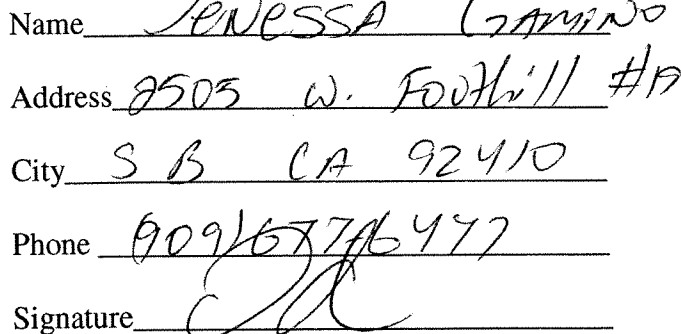 Name JENESSA GAMINO
Address 2505 W. Foothill #A
City S B CA 92410
Phone (909) 677-6477
Signature